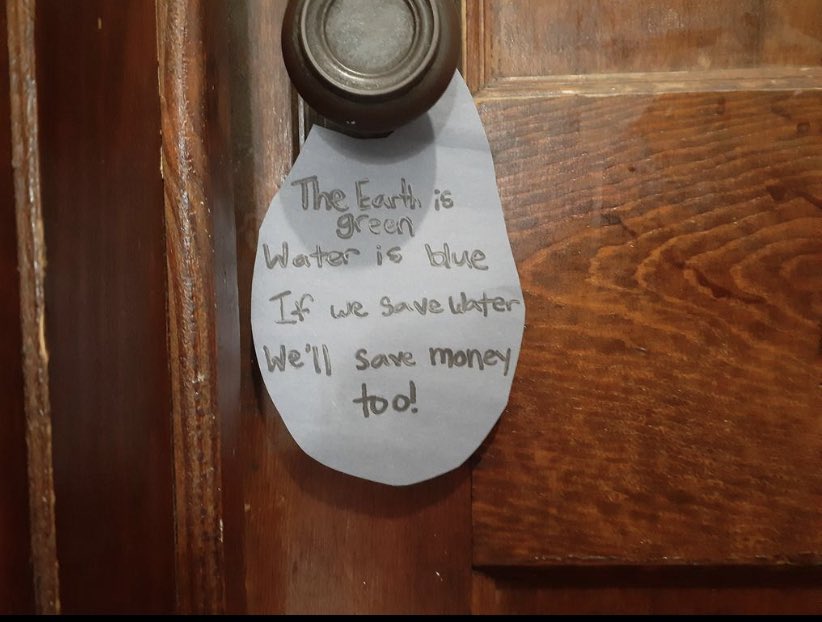 The Earth is
green
Water is blue
If we save Water
We'll save money
too!